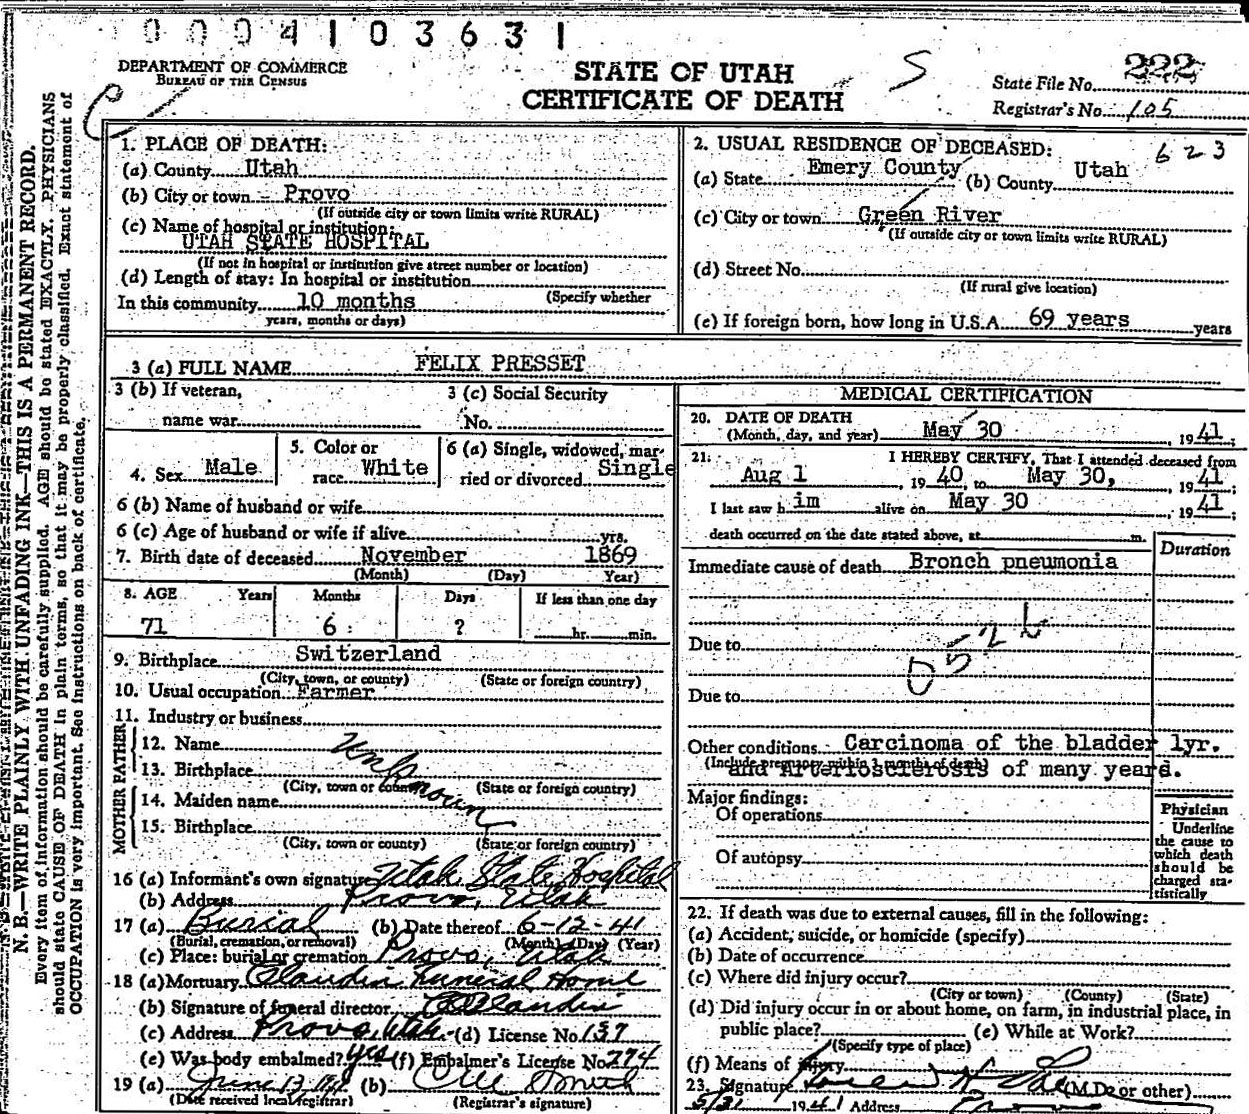 0004103631
DEPARTMENT OF COMMERCE
BUREAU OF THE CENSUS
STATE OF UTAH
CERTIFICATE OF DEATH
S
State File No. 222
Registrar's No. 105
N. B.—WRITE PLAINLY WITH UNFADING INK—THIS IS A PERMANENT RECORD.
Every item of information should be carefully supplied. AGE should be stated EXACTLY. PHYSICIANS
should state CAUSE OF DEATH in plain terms, so that it may be properly classified. Exact statement of
OCCUPATION is very important. See instructions on back of certificate.
1. PLACE OF DEATH:
(a) County Utah
(b) City or town Provo
(If outside city or town limits write RURAL)
(c) Name of hospital or institution:
UTAH STATE HOSPITAL
(If not in hospital or institution give street number or location)
(d) Length of stay: In hospital or institution
In this community 10 months (Specify whether
years, months or days)
2. USUAL RESIDENCE OF DECEASED: 623
(a) State Emery County (b) County Utah
(c) City or town Green River
(If outside city or town limits write RURAL)
(d) Street No.
(If rural give location)
(e) If foreign born, how long in U.S.A. 69 years years
3 (a) FULL NAME FELIX PRESSET
3 (b) If veteran, 3 (c) Social Security
name war No.
4. Sex Male
5. Color or
race White
6 (a) Single, widowed, mar-
ried or divorced Single
6 (b) Name of husband or wife
6 (c) Age of husband or wife if alive yrs.
7. Birth date of deceased November 1869
(Month) (Day) Year)
8. AGE Years Months Days If less than one day
71 6 ? hr. min.
9. Birthplace Switzerland
(City, town, or county) (State or foreign country)
10. Usual occupation Farmer
11. Industry or business
FATHER
12. Name Unknown
13. Birthplace
(City, town or county) (State or foreign country)
MOTHER
14. Maiden name
15. Birthplace
(City, town or county) (State or foreign country)
16 (a) Informant's own signature Utah State Hospital
(b) Address Provo, Utah
17 (a) Burial (b) Date thereof 6-12-41
(Burial, cremation, or removal) (Month) (Day) (Year)
(c) Place: burial or cremation Provo, Utah
18 (a) Mortuary Claudin Funeral Home
(b) Signature of funeral director Claudin
(c) Address Provo, Utah (d) License No. 137
(e) Was body embalmed? yes (f) Embalmer's License No. 274
19 (a) June 13 1941 (b)
(Date received local registrar) (Registrar's signature)
MEDICAL CERTIFICATION
20. DATE OF DEATH
(Month, day, and year) May 30, 1941;
21. I HEREBY CERTIFY, That I attended deceased from
Aug 1, 1940, to May 30, 1941;
I last saw him alive on May 30, 1941;
death occurred on the date stated above, at m.
Duration
Immediate cause of death Bronch pneumonia
Due to
052
Due to
Other conditions Carcinoma of the bladder 1yr.
(Include pregnancy within 3 months of death)
and Arteriosclerosis of many years.
Major findings:
Of operations
Of autopsy
Physician
Underline
the cause to
which death
should be
charged sta-
tistically
22. If death was due to external causes, fill in the following:
(a) Accident, suicide, or homicide (specify)
(b) Date of occurrence
(c) Where did injury occur?
(City or town) (County) (State)
(d) Did injury occur in or about home, on farm, in industrial place, in
public place? (e) While at Work?
(Specify type of place)
(f) Means of injury
23. Signature (M.D. or other)
5/31 1941 Address